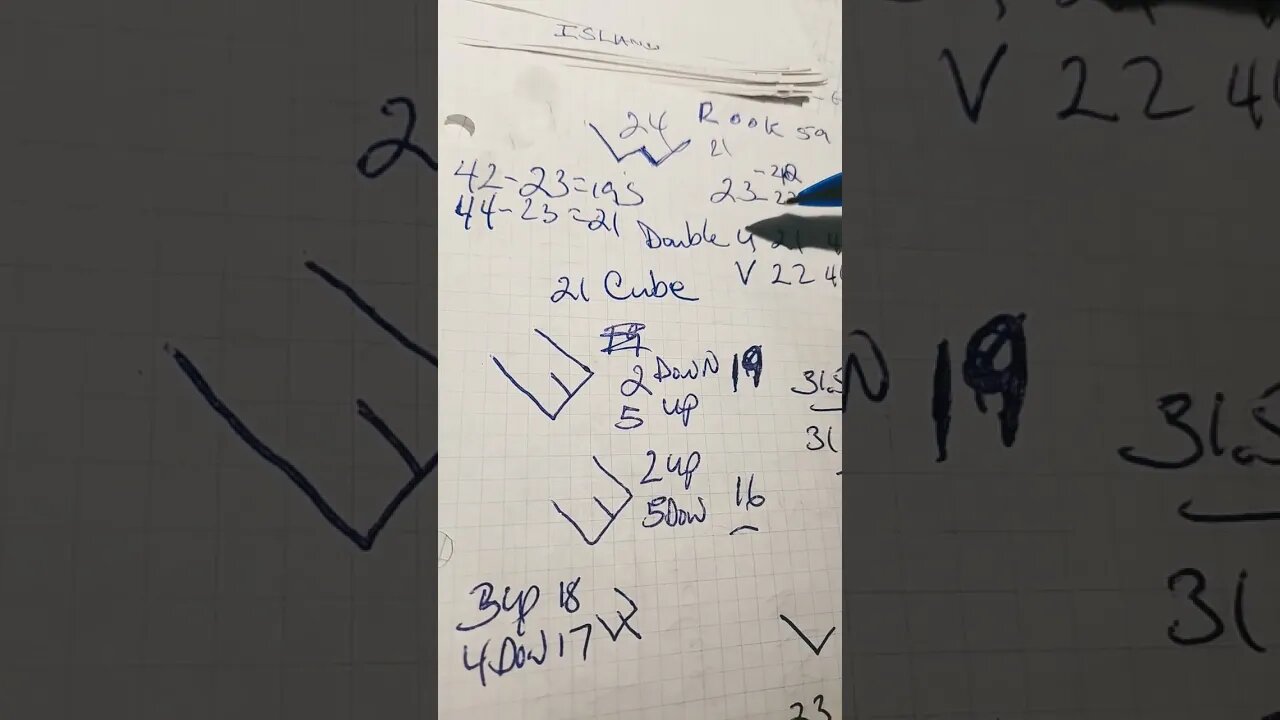 ISLAND
24 Rook 59
21
42-23=19's
44-23=21
23
Double 4 21
V 22 4
21 Cube
2 Down 19
5 up
31.5
31
2 up
5 Dow 16
3 up 18
4 Dow 17
23